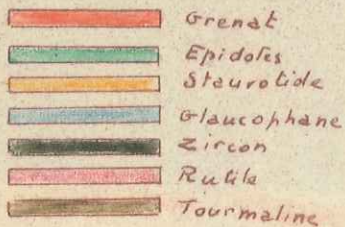 Grenat
Epidotes
Staurotide
Glaucophane
Zircon
Rutile
Tourmaline